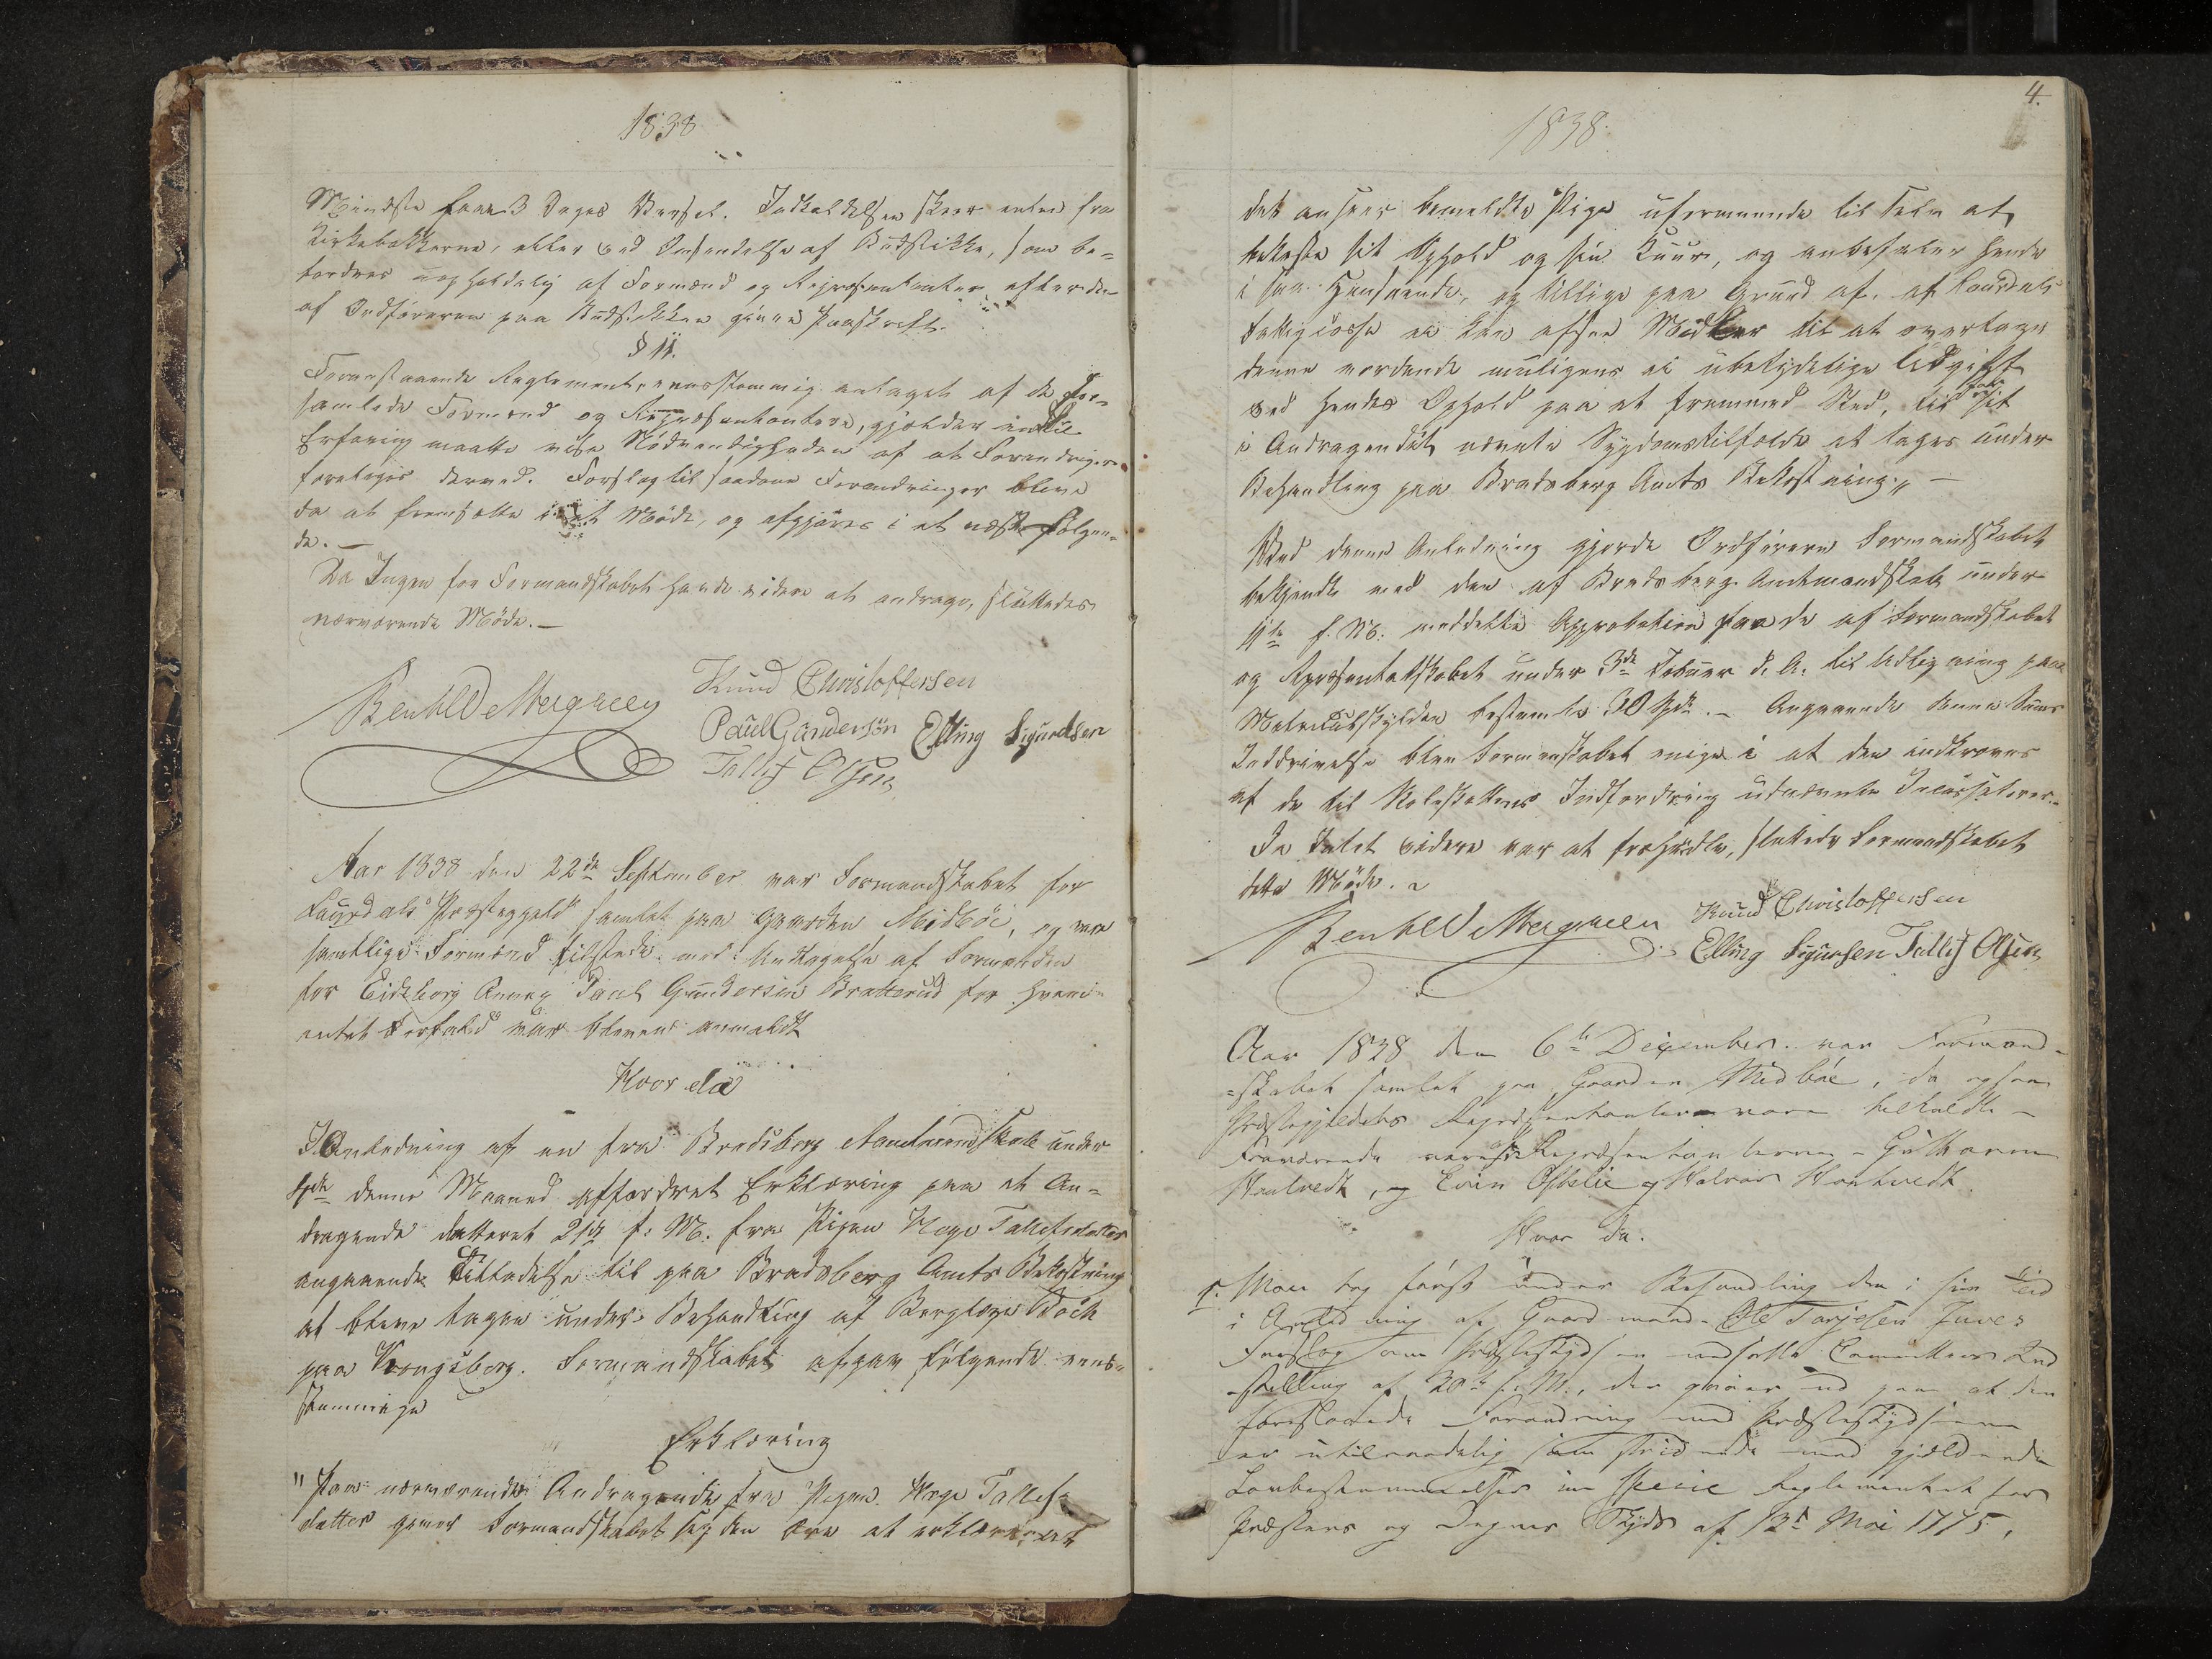 1838
Mindste faaer 3 Dages Varsel. Indkaldelsen skeer enten fra
Kirkebakkerne, eller ved Omsendelse af Budstikke, som be-
fordres uopholdelig af Formænd og Repræsentanter efter den
af Ordføreren paa Budstikken givne Paaskrift.
§ 11.
Foranstaaende Reglement, eensstemmig antaget af de for-
samlede Formænd og Repræsentantere, gjælder indtil
Erfaring maatte vise Nødvendigheden af at Forandringer
foretages dermed. Forslag til saadane Forandringer blive
da at fremsætte i et Møde, og afgjøres i et næst følgen-
de. —
Da Ingen for Formandskabet havde videre at andrage, sluttedes
nærværende Møde. —
Knud Christoffersen
Paul Gundersön Elling Sigurdsen
Tallef Olsen
Aar 1838 den 22de September var Formandskabet for
Laurdals Præstegjeld samlet paa Gaarden Midböe, og vare
samtlige Formænd tilstede med Undtagelse af Formanden
for Eidsborg Annex Paul Gundersön Bratterud for hvem
intet Forfald var bleven anmeldt
Hvor da
I Anledning af en fra Bradsberg Amtmandskab under
denne Maaned affordret Erklæring paa et An-
dragende datteret 21de f. M. fra Pigen Hæge Tallefsdatter
angaaende Tilladelse til paa Bradsberg Amts Bekostning
at blive tagen under Behandling af Berglæge Bock
paa Kongsberg. Formandskabet afgav følgende eens-
stemmige
Erklæring
"Paa nærværende Andragende fra Pigen Hæge Tallefs-
datter giver Formandskabet sig den Ære at erklære: at
4.
1838.
det ansees bemeldte Pige uformuende til selv at
bekoste sit Ophold og sin Kuur, og anbefaler hende
i saa Henseende, og tillige paa Grund af, at Laurdals
Fattigcasse ei kan afsee Midler til at overtage
denne vordende muligens ei ubetydelige Udgift
ved hendes Ophold paa et fremmed Sted, til for sit
i Andragendet nævnte Sygdomstilfælde at tages under
Behandling paa Bradsberg Amts Bekostning." —
Ved denne Anledning gjorde Ordføreren Formandskabet
bekjendt med den af Bradsberg Amtmandskab under
11te f. M. meddelte Approbation paa de af Formandskabet
og Repræsentatskabet under 3de Febuar d. A. til Udligning paa
Matriculskylden bestemte 30 Spd. — Angaaende denne Sums
Inddrivelse blev Formanskabet enige i at den indkræves
af de til Skoleskattens Indfordring udnævnte Incassatorer.
Da Intet videre var at forhandle, sluttede Formandskabet
dette Møde.
Knud Christoffersen
Elling Sigursen Tallef Olsen
Aar 1838 den 6te December var Formand-
-skabet samlet paa Gaarden Midböe, da ogsaa
Præstegjeldets Repræsentantere vare tilkaldte —
Fraværende vare Repræsentanterne — Guthorm
Hantvedt, og Evin Ofstelie og Halvor Hantvedt
Hvor da.
1. Man tog först under Behandling den i sin Tid
i Anledning af Gaardmand Ole Tarjesen Juves
Forslag om Præsteskydsen nedsatte Committees Ind
-stilling af 20de f. M., der gaaer ud paa at den
foreslaaede Forandring med Præsteskydsen
er utilraadelig som stridende mod gjældende
Lovbestemmelser in specie Reglementet for
Præstens og Degnes Skyds af 13de Mai 1775,